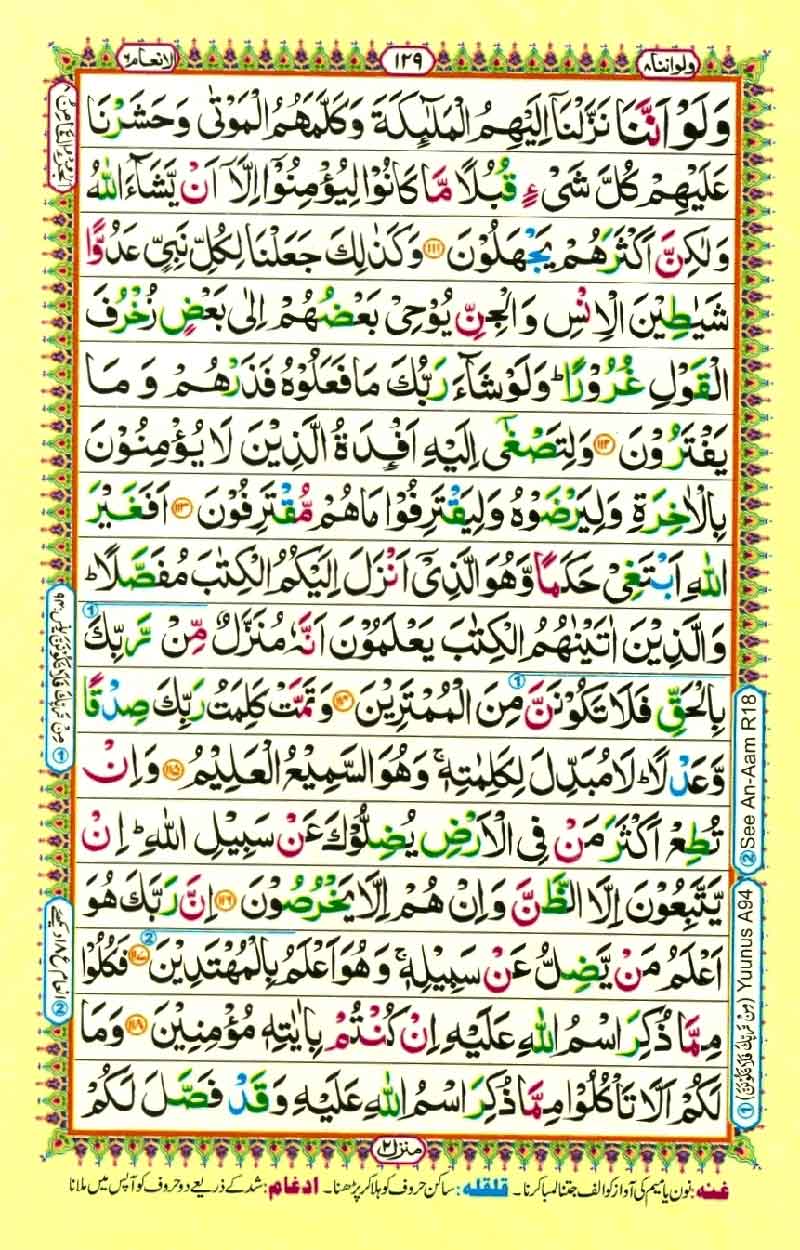 ولواننا ٨
١٢٩
الانعام ٦
وَلَوْ اَنَّنَا نَزَّلْنَاۤ اِلَيْهِمُ الْمَلٰٓئِكَةَ وَكَلَّمَهُمُ الْمَوْتٰى وَحَشَرْنَا
عَلَيْهِمْ كُلَّ شَىْءٍ قُبُلًا مَّا كَانُوْا لِيُؤْمِنُوْۤا اِلَّاۤ اَنْ يَّشَآءَ اللّٰهُ
وَلٰكِنَّ اَكْثَرَهُمْ يَجْهَلُوْنَ ۝١١١ وَكَذٰلِكَ جَعَلْنَا لِكُلِّ نَبِىٍّ عَدُوًّا
شَيٰطِيْنَ الْاِنْسِ وَالْجِنِّ يُوْحِىْ بَعْضُهُمْ اِلٰى بَعْضٍ زُخْرُفَ
الْقَوْلِ غُرُوْرًاؕ وَلَوْ شَآءَ رَبُّكَ مَا فَعَلُوْهُ فَذَرْهُمْ وَمَا
يَفْتَرُوْنَ ۝١١٢ وَلِتَصْغٰۤى اِلَيْهِ اَفْـِٕدَةُ الَّذِيْنَ لَا يُؤْمِنُوْنَ
بِالْاٰخِرَةِ وَلِيَرْضَوْهُ وَلِيَقْتَرِفُوْا مَا هُمْ مُّقْتَرِفُوْنَ ۝١١٣ اَفَغَيْرَ
اللّٰهِ اَبْتَغِىْ حَكَمًا وَّهُوَ الَّذِىْۤ اَنْزَلَ اِلَيْكُمُ الْكِتٰبَ مُفَصَّلًاؕ
وَالَّذِيْنَ اٰتَيْنٰهُمُ الْكِتٰبَ يَعْلَمُوْنَ اَنَّهٗ مُنَزَّلٌ مِّنْ رَّبِّكَ
بِالْحَقِّ فَلَا تَكُوْنَنَّ مِنَ الْمُمْتَرِيْنَ ۝١١٤ وَتَمَّتْ كَلِمَتُ رَبِّكَ صِدْقًا
وَّعَدْلًاؕ لَا مُبَدِّلَ لِكَلِمٰتِهٖۚ وَهُوَ السَّمِيْعُ الْعَلِيْمُ ۝١١٥ وَاِنْ
تُطِعْ اَكْثَرَ مَنْ فِى الْاَرْضِ يُضِلُّوْكَ عَنْ سَبِيْلِ اللّٰهِؕ اِنْ
يَّتَّبِعُوْنَ اِلَّا الظَّنَّ وَاِنْ هُمْ اِلَّا يَخْرُصُوْنَ ۝١١٦ اِنَّ رَبَّكَ هُوَ
اَعْلَمُ مَنْ يَّضِلُّ عَنْ سَبِيْلِهٖۚ وَهُوَ اَعْلَمُ بِالْمُهْتَدِيْنَ ۝١١٧ فَكُلُوْا
مِمَّا ذُكِرَ اسْمُ اللّٰهِ عَلَيْهِ اِنْ كُنْتُمْ بِاٰيٰتِهٖ مُؤْمِنِيْنَ ۝١١٨ وَمَا
لَكُمْ اَلَّا تَاْكُلُوْا مِمَّا ذُكِرَ اسْمُ اللّٰهِ عَلَيْهِ وَقَدْ فَصَّلَ لَكُمْ
② See An-Aam R18
① (مِنْ رَّبِّكَ فَلَا تَكُوْنَنَّ) Yuunus A94
منزل ٢
غنه: نون یا میم کی آواز کو الف جتنا لمبا کرنا۔ قلقله: ساکن حروف کو ہلا کر پڑھنا۔ ادغام: شد کے ذریعے دو حروف کو آپس میں ملانا